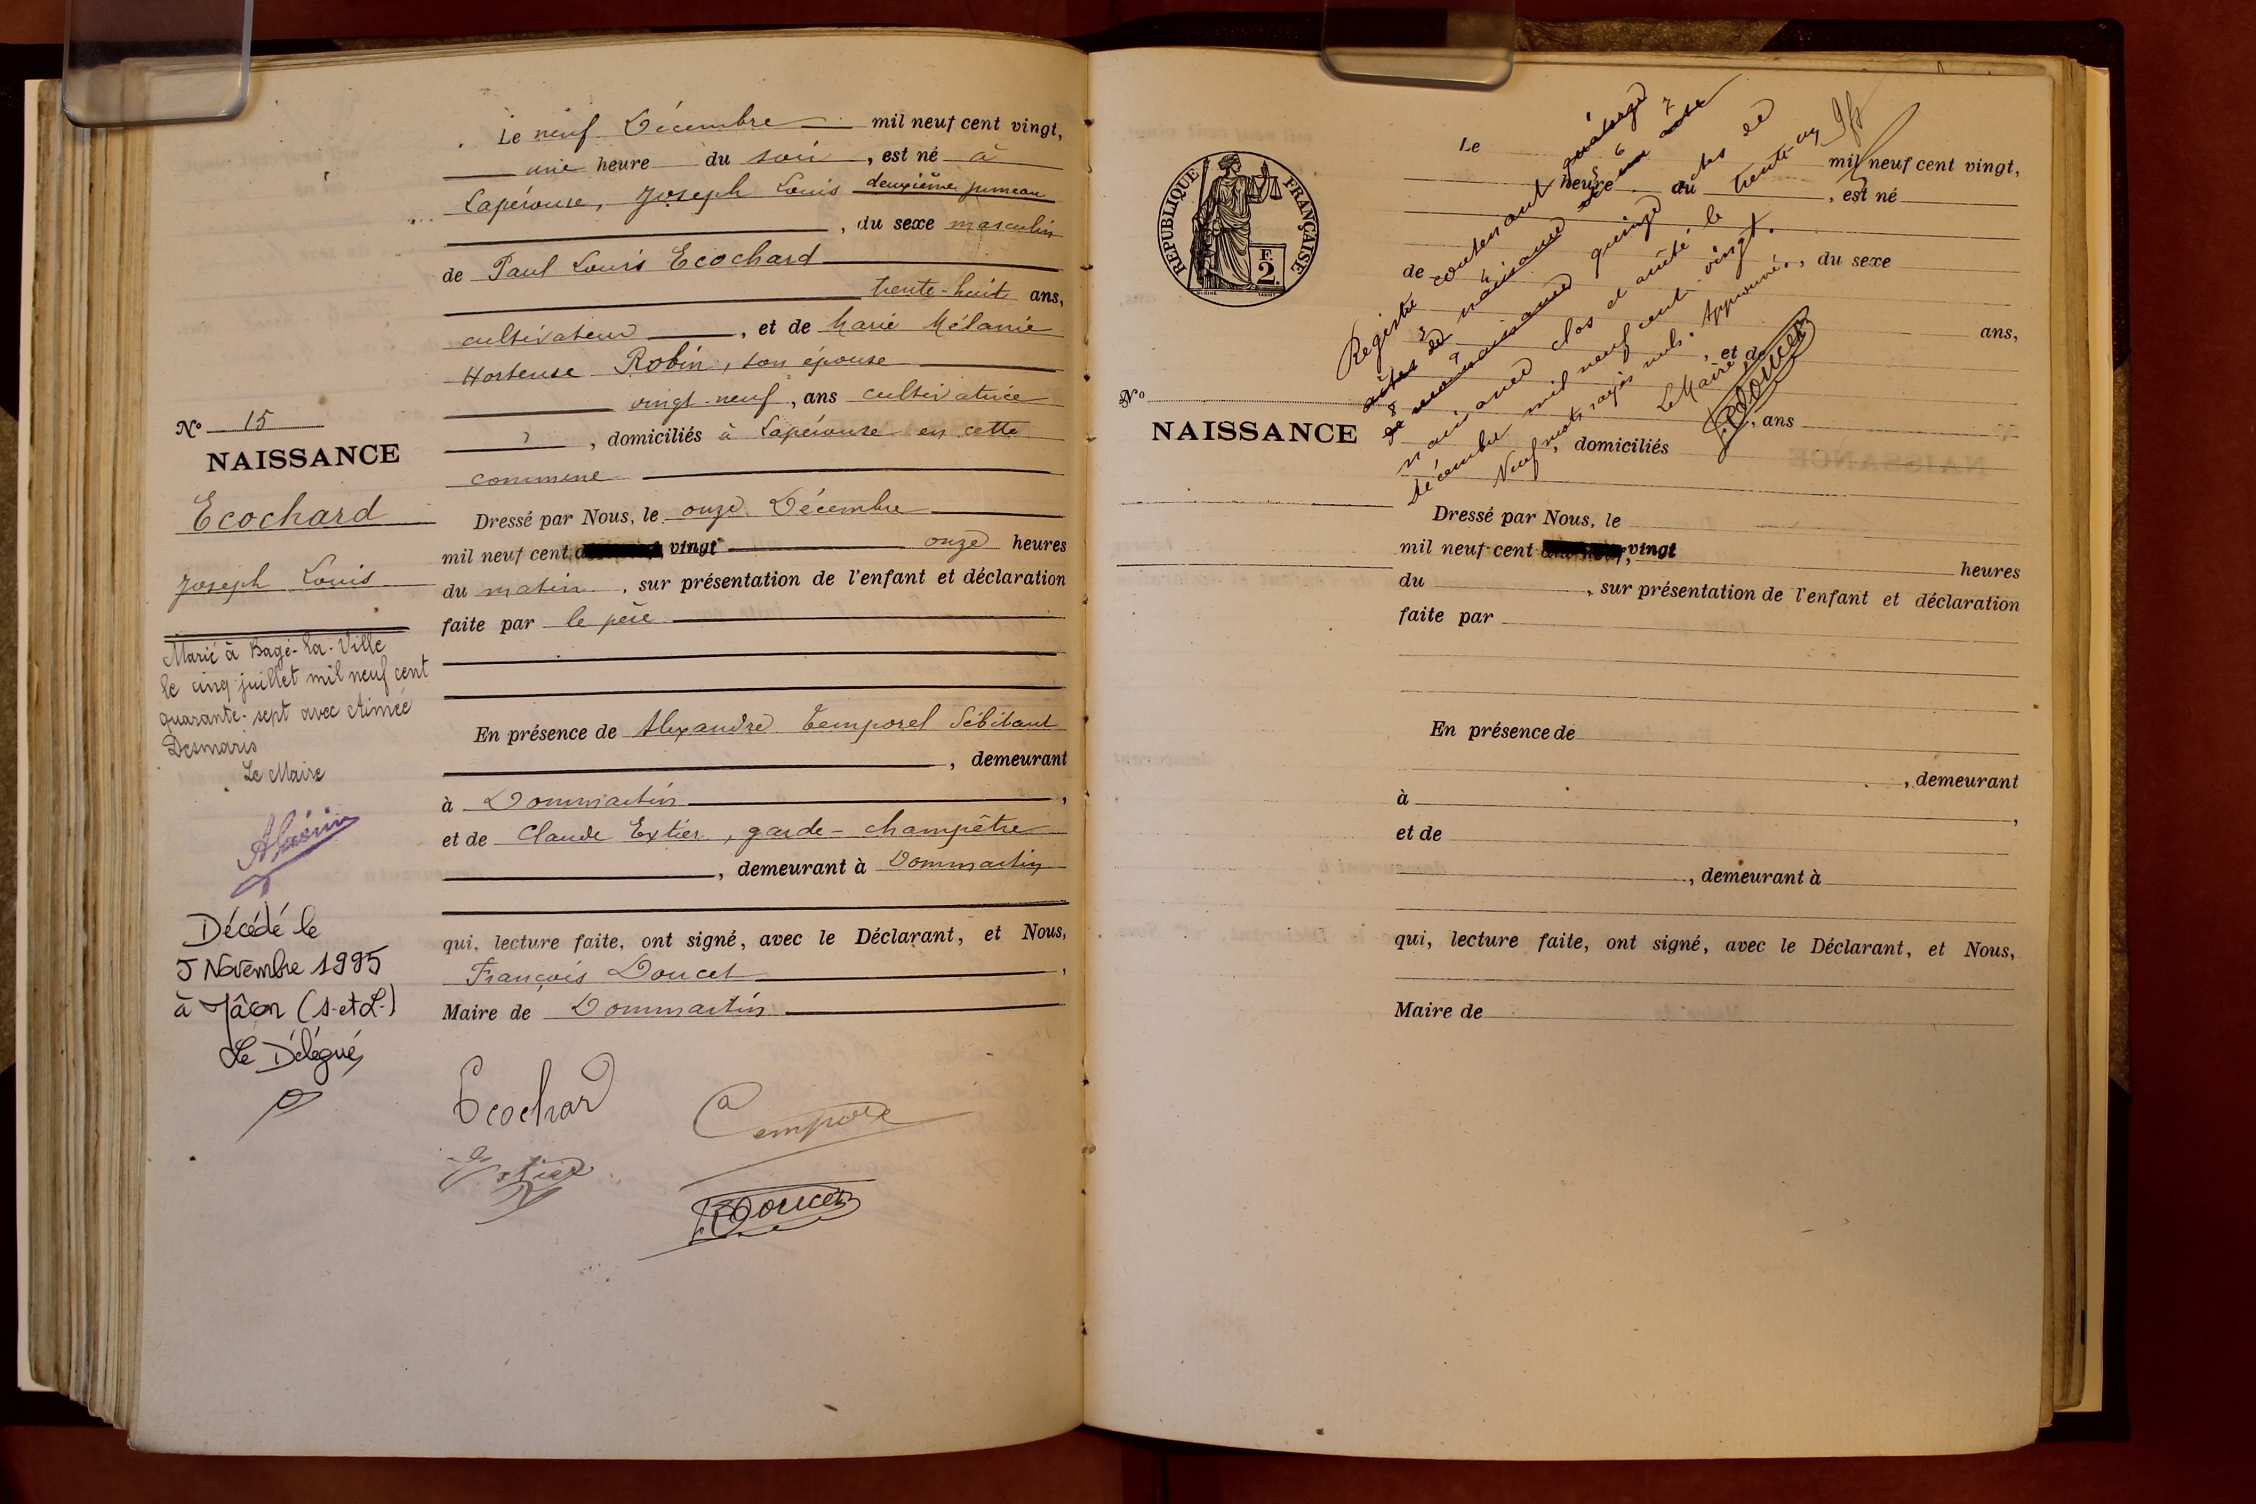 Le neuf Décembre mil neuf cent vingt,
une heure du soir, est né à
Lapérouse, Joseph Louis deuxième jumeau
, du sexe masculin
de Paul Louis Ecochard
trente-huit ans,
cultivateur, et de Marie Mélanie
Hortense Robin, son épouse
vingt-neuf, ans cultivatrice
, domiciliés à Lapérouse en cette
commune
Dressé par Nous, le onze Décembre
mil neuf cent vingt onze heures
du matin, sur présentation de l'enfant et déclaration
faite par le père
En présence de Alexandre Temporel Débitant
, demeurant
à Dommartin,
et de Claude Extier, garde-champêtre
, demeurant à Dommartin
qui, lecture faite, ont signé, avec le Déclarant, et Nous,
François Doucet,
Maire de Dommartin
Ecochard
Temporel
Extier
F. Doucet
No 15
NAISSANCE
Ecochard
Joseph Louis
Marié à Bagé-la-Ville
le cinq juillet mil neuf cent
quarante-sept avec Aimée
Desmaris
Le Maire
Décédé le
5 Novembre 1995
à Mâcon (S.-et-L.)
Le Délégué
RÉPUBLIQUE FRANÇAISE
F.
2.
No
NAISSANCE
Le mil neuf cent vingt,
heure du, est né
de, du sexe
ans,
, et de
, ans
, domiciliés
Dressé par Nous, le
mil neuf cent vingt
heures
du, sur présentation de l'enfant et déclaration
faite par
En présence de
, demeurant
à,
et de
, demeurant à
qui, lecture faite, ont signé, avec le Déclarant, et Nous,
Maire de
Registre contenant quatorze
actes de naissance
quinze actes de
naissance clos et arrêté le trente-un
décembre mil neuf cent vingt.
Neuf mots rayés nuls. Approuvé.
Le Maire
F. Doucet